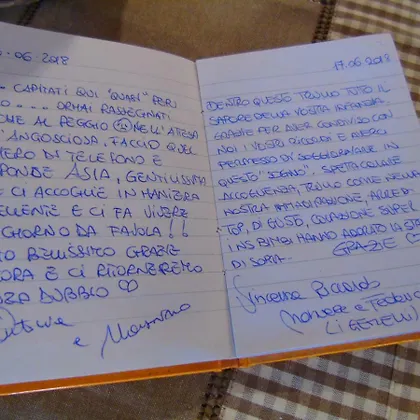 06.2018
... CAPITATI QUI "QUASI" PER
... ORMAI RASSEGNATI
CHE AL PEGGIO NELL'ATTESA
ANGOSCIOSA, FACCIO QUEL
NUMERO DI TELEFONO E
RISPONDE ASIA, GENTILISSIMA
CI ACCOGLIE IN MANIERA
E CI FA VIVERE
GIORNO DA FAVOLA!!
BELLISSIMO GRAZIE
E CI RITORNEREMO
SENZA DUBBIO
e Massimo
17.06.2018
DENTRO QUESTO TRULLO TUTTO IL
SAPORE DELLA VOSTRA INFANZIA.
GRAZIE PER AVER CONDIVISO CON
NOI I VOSTRI RICORDI E AVERCI
PERMESSO DI SOGGIORNARE IN
QUESTO "SOGNO". SPETTACOLARE
ACCOGLIENZA, TRULLO COME NELLA
NOSTRA IMMAGINAZIONE, ARREDI
TOP, DI GUSTO, COLAZIONE SUPER
I NS BIMBI HANNO ADORATO LA
DI SOPRA. GRAZIE
Vincenza Riccardo
e
(I GEMELLI)